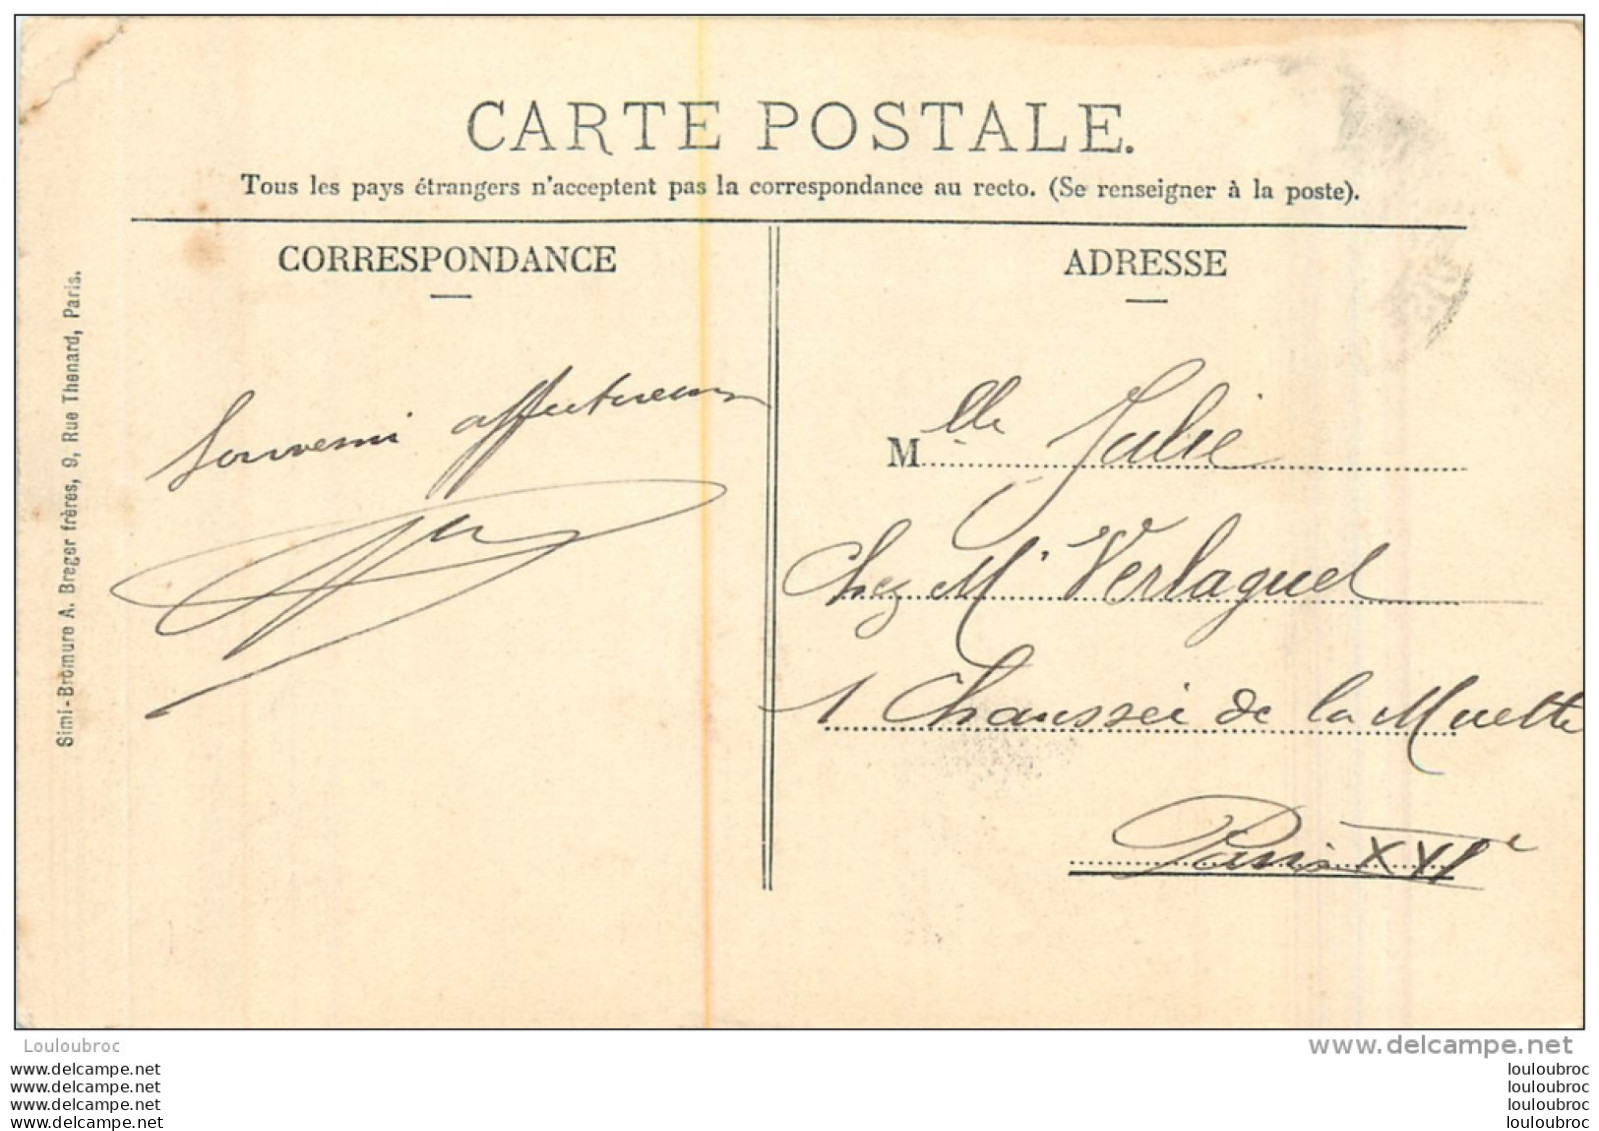 CARTE POSTALE.
Tous les pays étrangers n'acceptent pas la correspondance au recto. (Se renseigner à la poste).
CORRESPONDANCE
ADRESSE
Simi-Bromure A. Breger frères, 9, Rue Thenard, Paris.
Souvenir affectueux
Mlle Julie
Chez Mr Verlaguet
1 Chaussée de la Muette
Paris XVIe
Louloubroc
www.delcampe.net
www.delcampe.net
www.delcampe.net
www.delcampe.net
www.delcampe.net
louloubroc
louloubroc
louloubroc
louloubroc